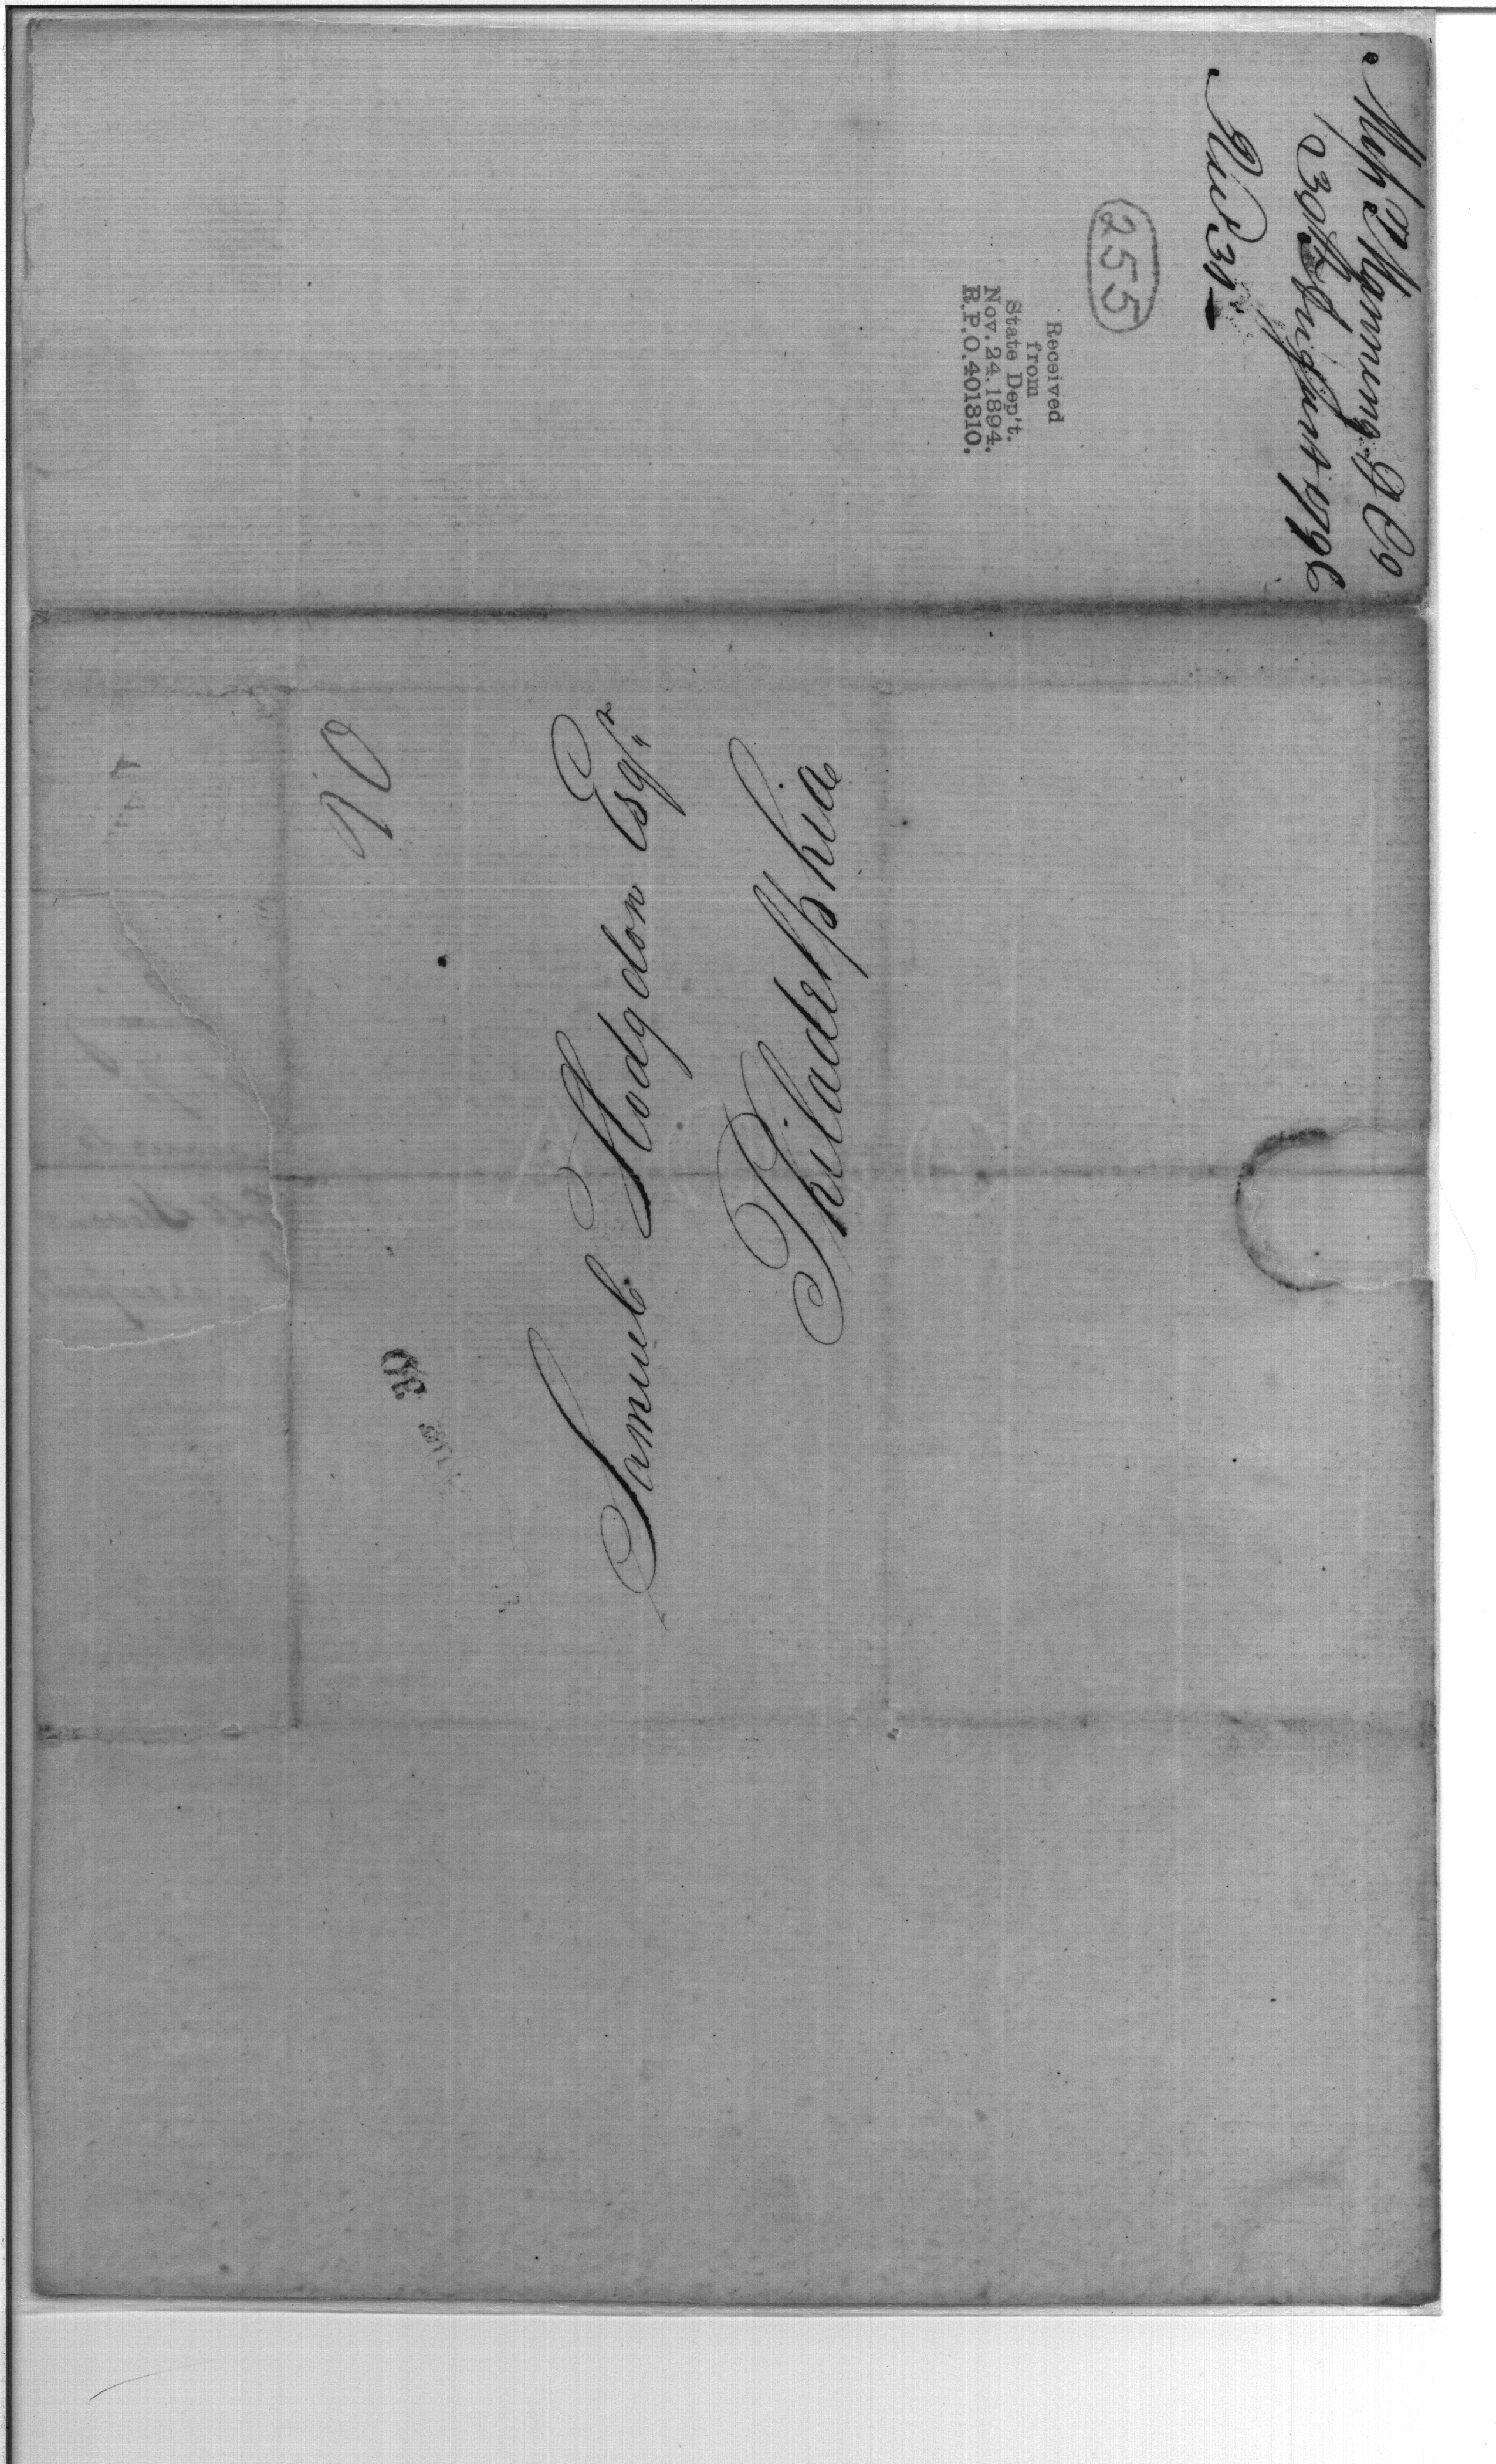 Messrs Manning & Co
30th August 1796
Recd 31st
255
Received
from
State Dep't.
Nov. 24. 1894.
R.P.O. 401310.
10
Samuel Hodgdon Esqr.
Philadelphia
30